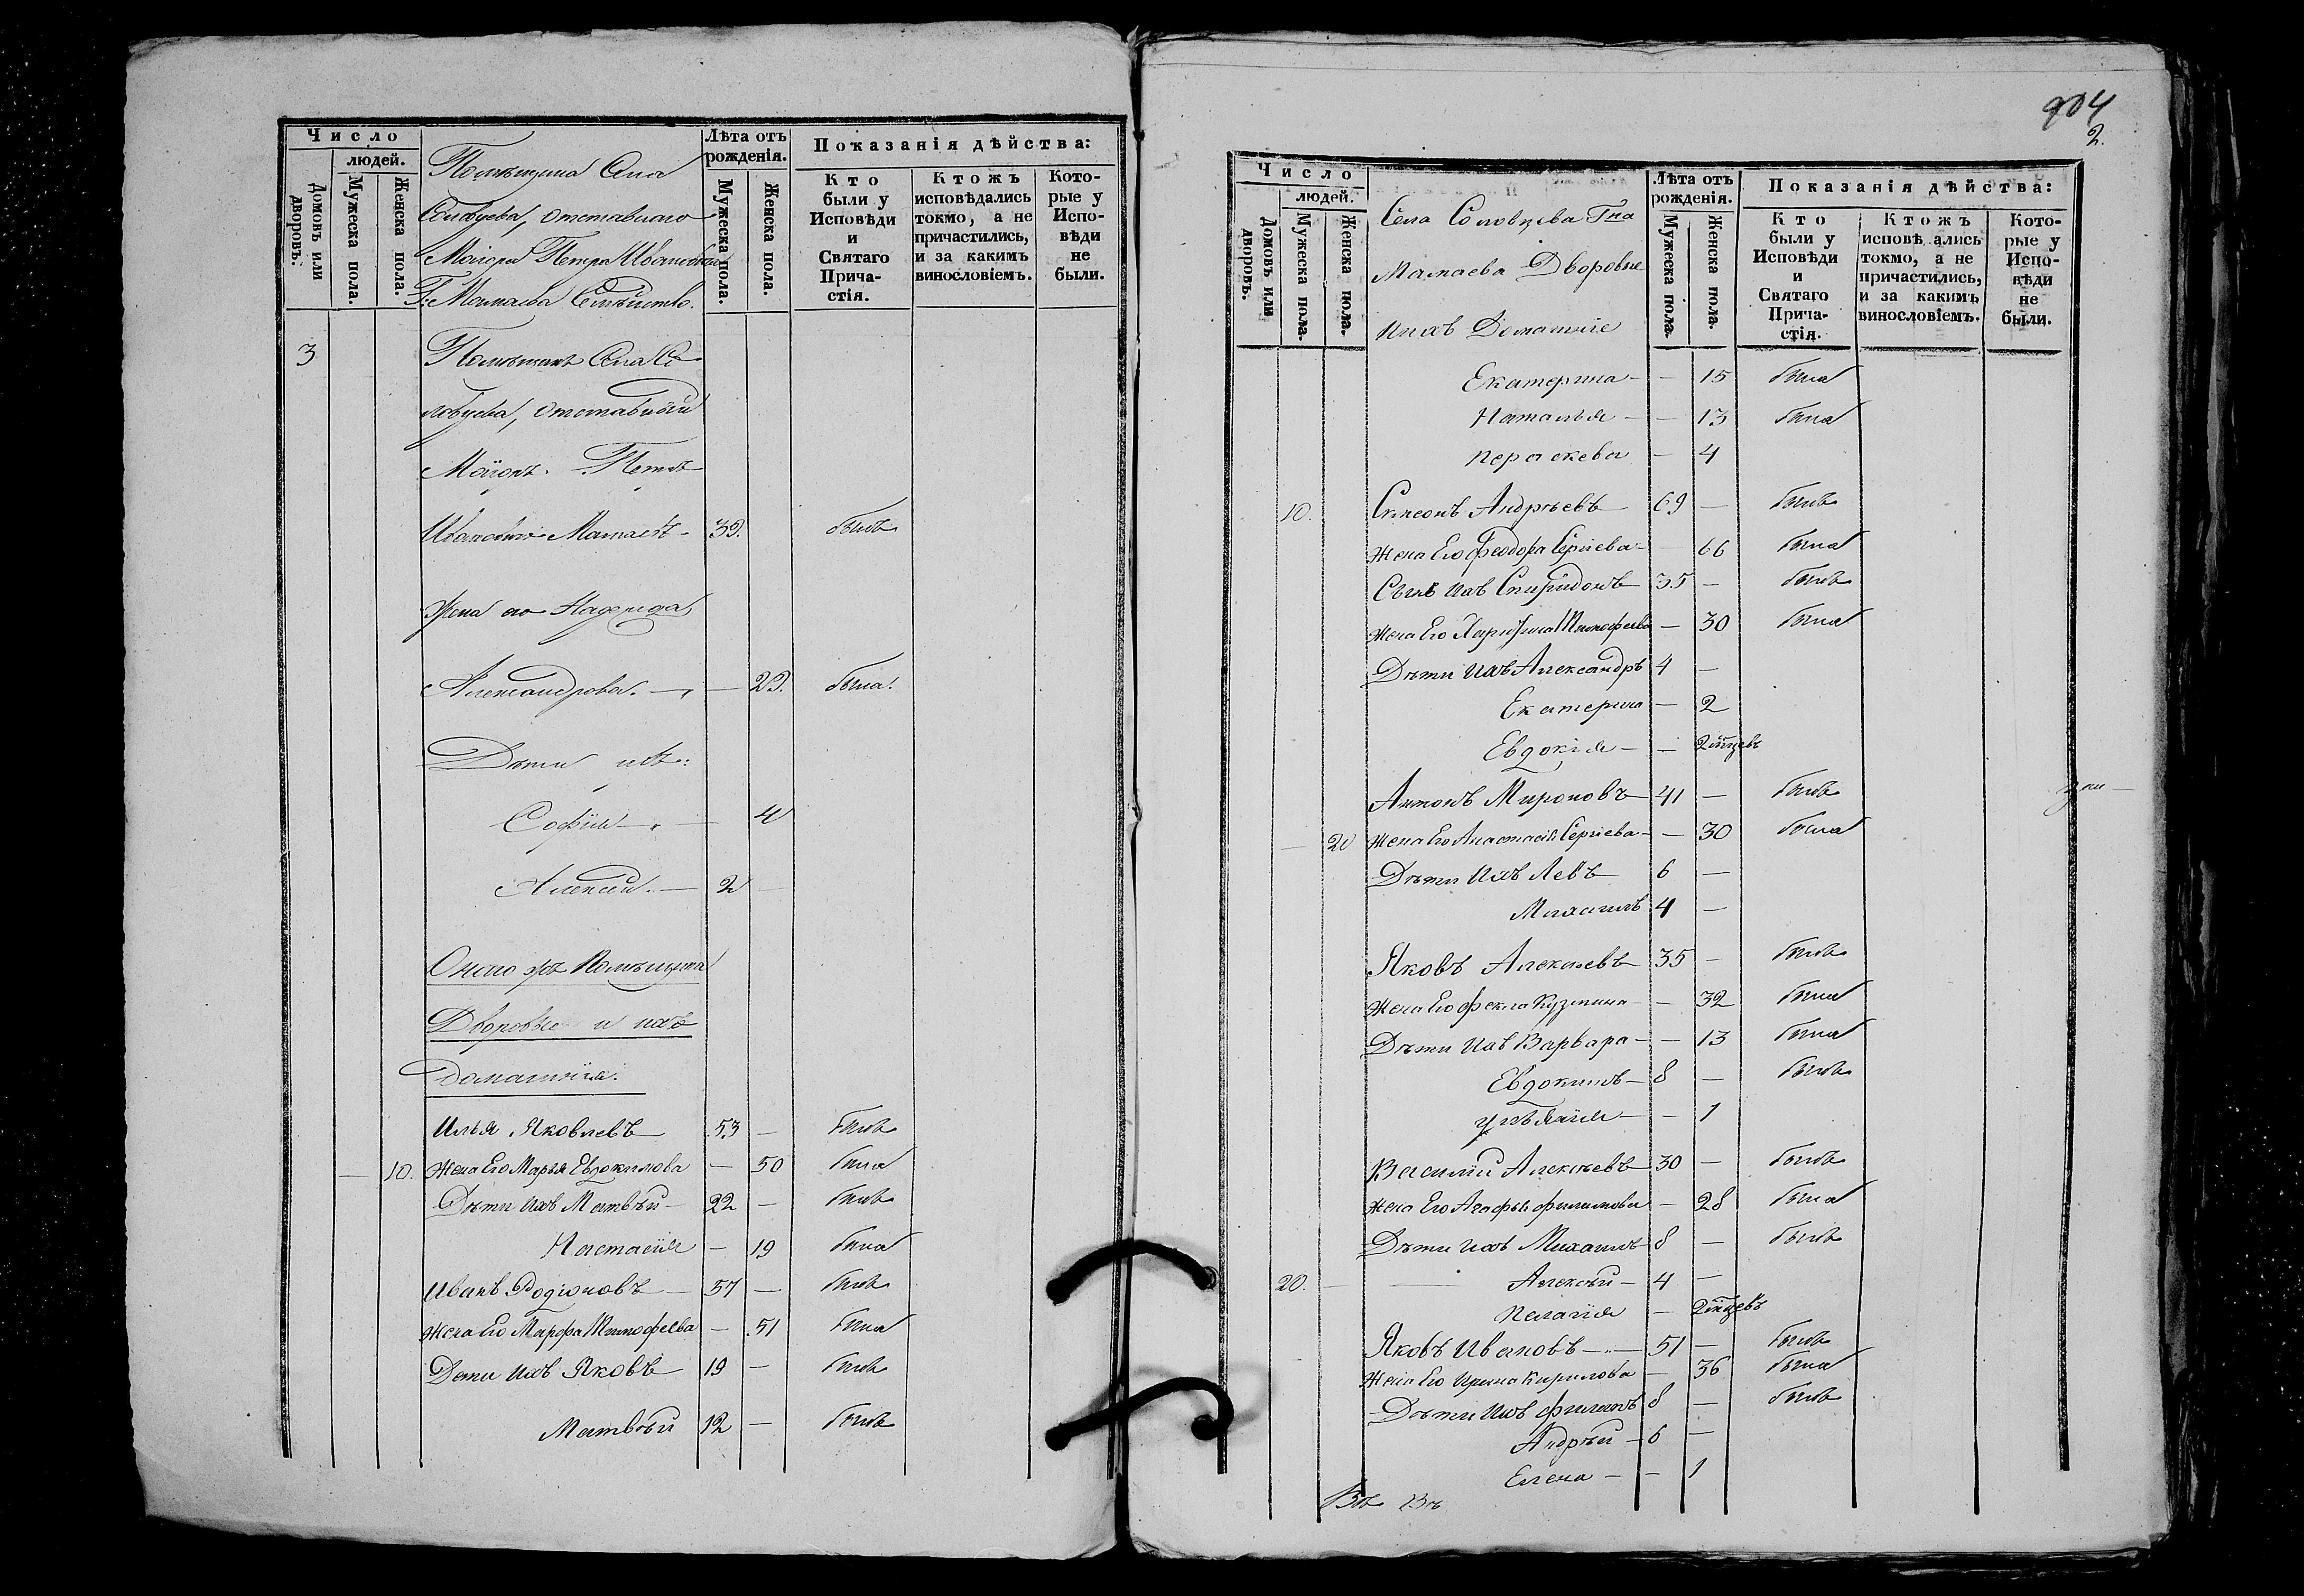 Число
людей.
Домовъ или дворовъ.
Мужеска пола.
Женска пола.
Помѣщика Села
Соловцева, отставнаго
Маіора Петра Ивановича
Г. Мамаева Семѣйство.
Лѣта отъ рожденія.
Мужеска пола.
Женска пола.
Показанія дѣйства:
Кто были у Исповѣди и Святаго Причастія.
Ктожъ исповѣдались токмо, а не причастились, и за какимъ винословіемъ.
Которые у Исповѣди не были.
3 Помѣщикъ Села Со
ловцева, отставный
Маіоръ Петръ
Ивановичь Мамаевъ - 39. былъ
Жена его Надежда
Александрова. — — 22. была.
Дѣти ихъ:
Софія — — 4
Алексѣй. — 2 —
Онаго жъ Помѣщика
Дворовые и ихъ
Домашнія.
Илья Яковлевъ 53 — былъ
— 10. Жена Его Марья Евдокимова — 50 была
Дѣти ихъ Матвѣй — 22 — былъ
Настасія — 19 была
Иванъ Родіоновъ — 57 — былъ
Жена Его Марфа Тимофеева — 51 была
Дети ихъ Яковъ 19 — былъ
Матвѣй 12 — былъ
904
2.
Число
людей.
Домовъ или дворовъ.
Мужеска пола.
Женска пола.
Села Соловцева Гна
Мамаева Дворовые
и ихъ Домашніе
Лѣта отъ рожденія.
Мужеска пола.
Женска пола.
Показанія дѣйства:
Кто были у Исповѣди и Святаго Причастія.
Ктожъ исповѣ ались токмо, а не причастились, и за какимъ винословіемъ.
Которые у Исповѣди не были.
Екатерина — — 15 была
Наталья — — 13 была
Пераскева — 4
10. Симеонъ Андрѣевъ 69 — былъ
Жена Его Феодора Сергіева — — 66 была
Сынъ ихъ Спиридонъ 35 — былъ
Жена Его Тимофеева — 30 была
Дѣти ихъ Александръ 4 —
Екатерина — 2
Евдокія — — 2 мцевъ
Антонъ Мироновъ 41 — былъ
— 20 Жена Его Анастасія Сергіева — — 30 была
Дѣти ихъ Левъ 6 —
Михаилъ 4 —
Яковъ Алексѣевъ 35 — былъ
Жена Его Фекла Кузмина — — 32 была
Дѣти ихъ Варвара — — 13 была
Евдокимъ — 8 — былъ
Ульянія — — 1
Василій Алексѣевъ 30 — былъ
Жена Его Агафья Филимонова — 28 была
Дѣти ихъ Михаилъ 8 — былъ
20. — Алексѣй — 4 —
Пелагія — 2 мцевъ
Яковъ Ивановъ — 51 — былъ
Жена Его Ирина Кирилова — 36 была
Дѣти ихъ Филипъ 8 — былъ
Андрѣй — 6 —
Елена — — 1